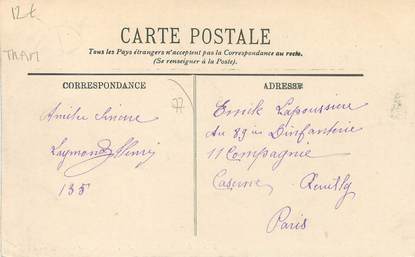 12€
TRAM
CARTE POSTALE
Tous les Pays étrangers n'acceptent pas la Correspondance au recto.
(Se renseigner à la Poste).
CORRESPONDANCE
77
ADRESSE
Amitié Sincère
Raymond Henri
135
Emile Lapoussière
au 89 ie D'infanterie
11 Compagnie
Caserne Reuilly
Paris